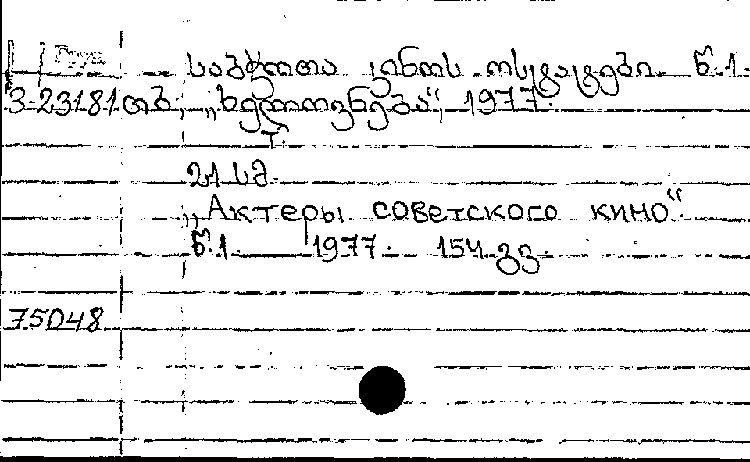 Груз.
საბჭოთა კინოს ოსტატები. წ.1.
3-23181 თბ., „ხელოვნება“, 1977.
т.
21 სმ.
„Актеры советского кино“.
წ.1. 1977. 154 გვ.
75048